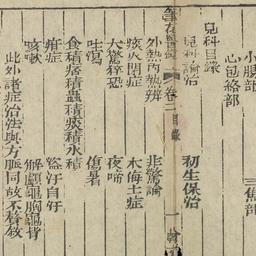 小腸部 三焦部
心包絡部
兒科目錄
兒科論治 初生保治
卷二 目錄 一
外熱內熱辨 非驚論
痰火閉症 木侮土症
大驚猝恐 夜啼
吐瀉 傷暑
食積痞積蟲積痰積水積
疳症 盜汗自汗
咳嗽 解顱龜胸龜背
此外諸症治法與方脈同故不聲敘